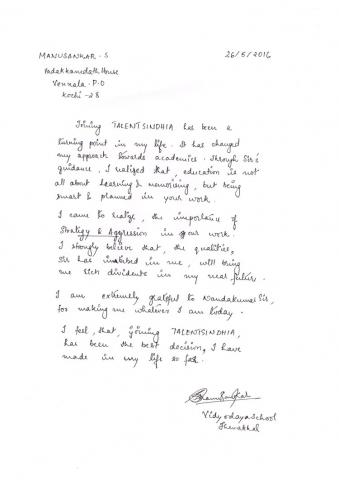 MANUSANKAR. S.
26/5/2016
Vadakkanedath House
Vennala. P.O
Kochi - 28
Joining TALENTSINDHIA has been a
turning point in my life. It has changed
my approach towards academics. Through Sir's
guidance, I realized that, education is not
all about learning & memorising, but being
smart & planned in your work.
I came to realize, the importance of
Strategy & Aggression in your work.
I strongly believe that, the qualities,
Sir has imbibed in me, will bring
me rich dividents in my near future.
I am extremely grateful to Nandakumar Sir,
for making me whatever I am today.
I feel, that, joining TALENTSINDHIA,
has been the best decision, I have
made in my life so far.
Vidyodaya School
Thevakkal